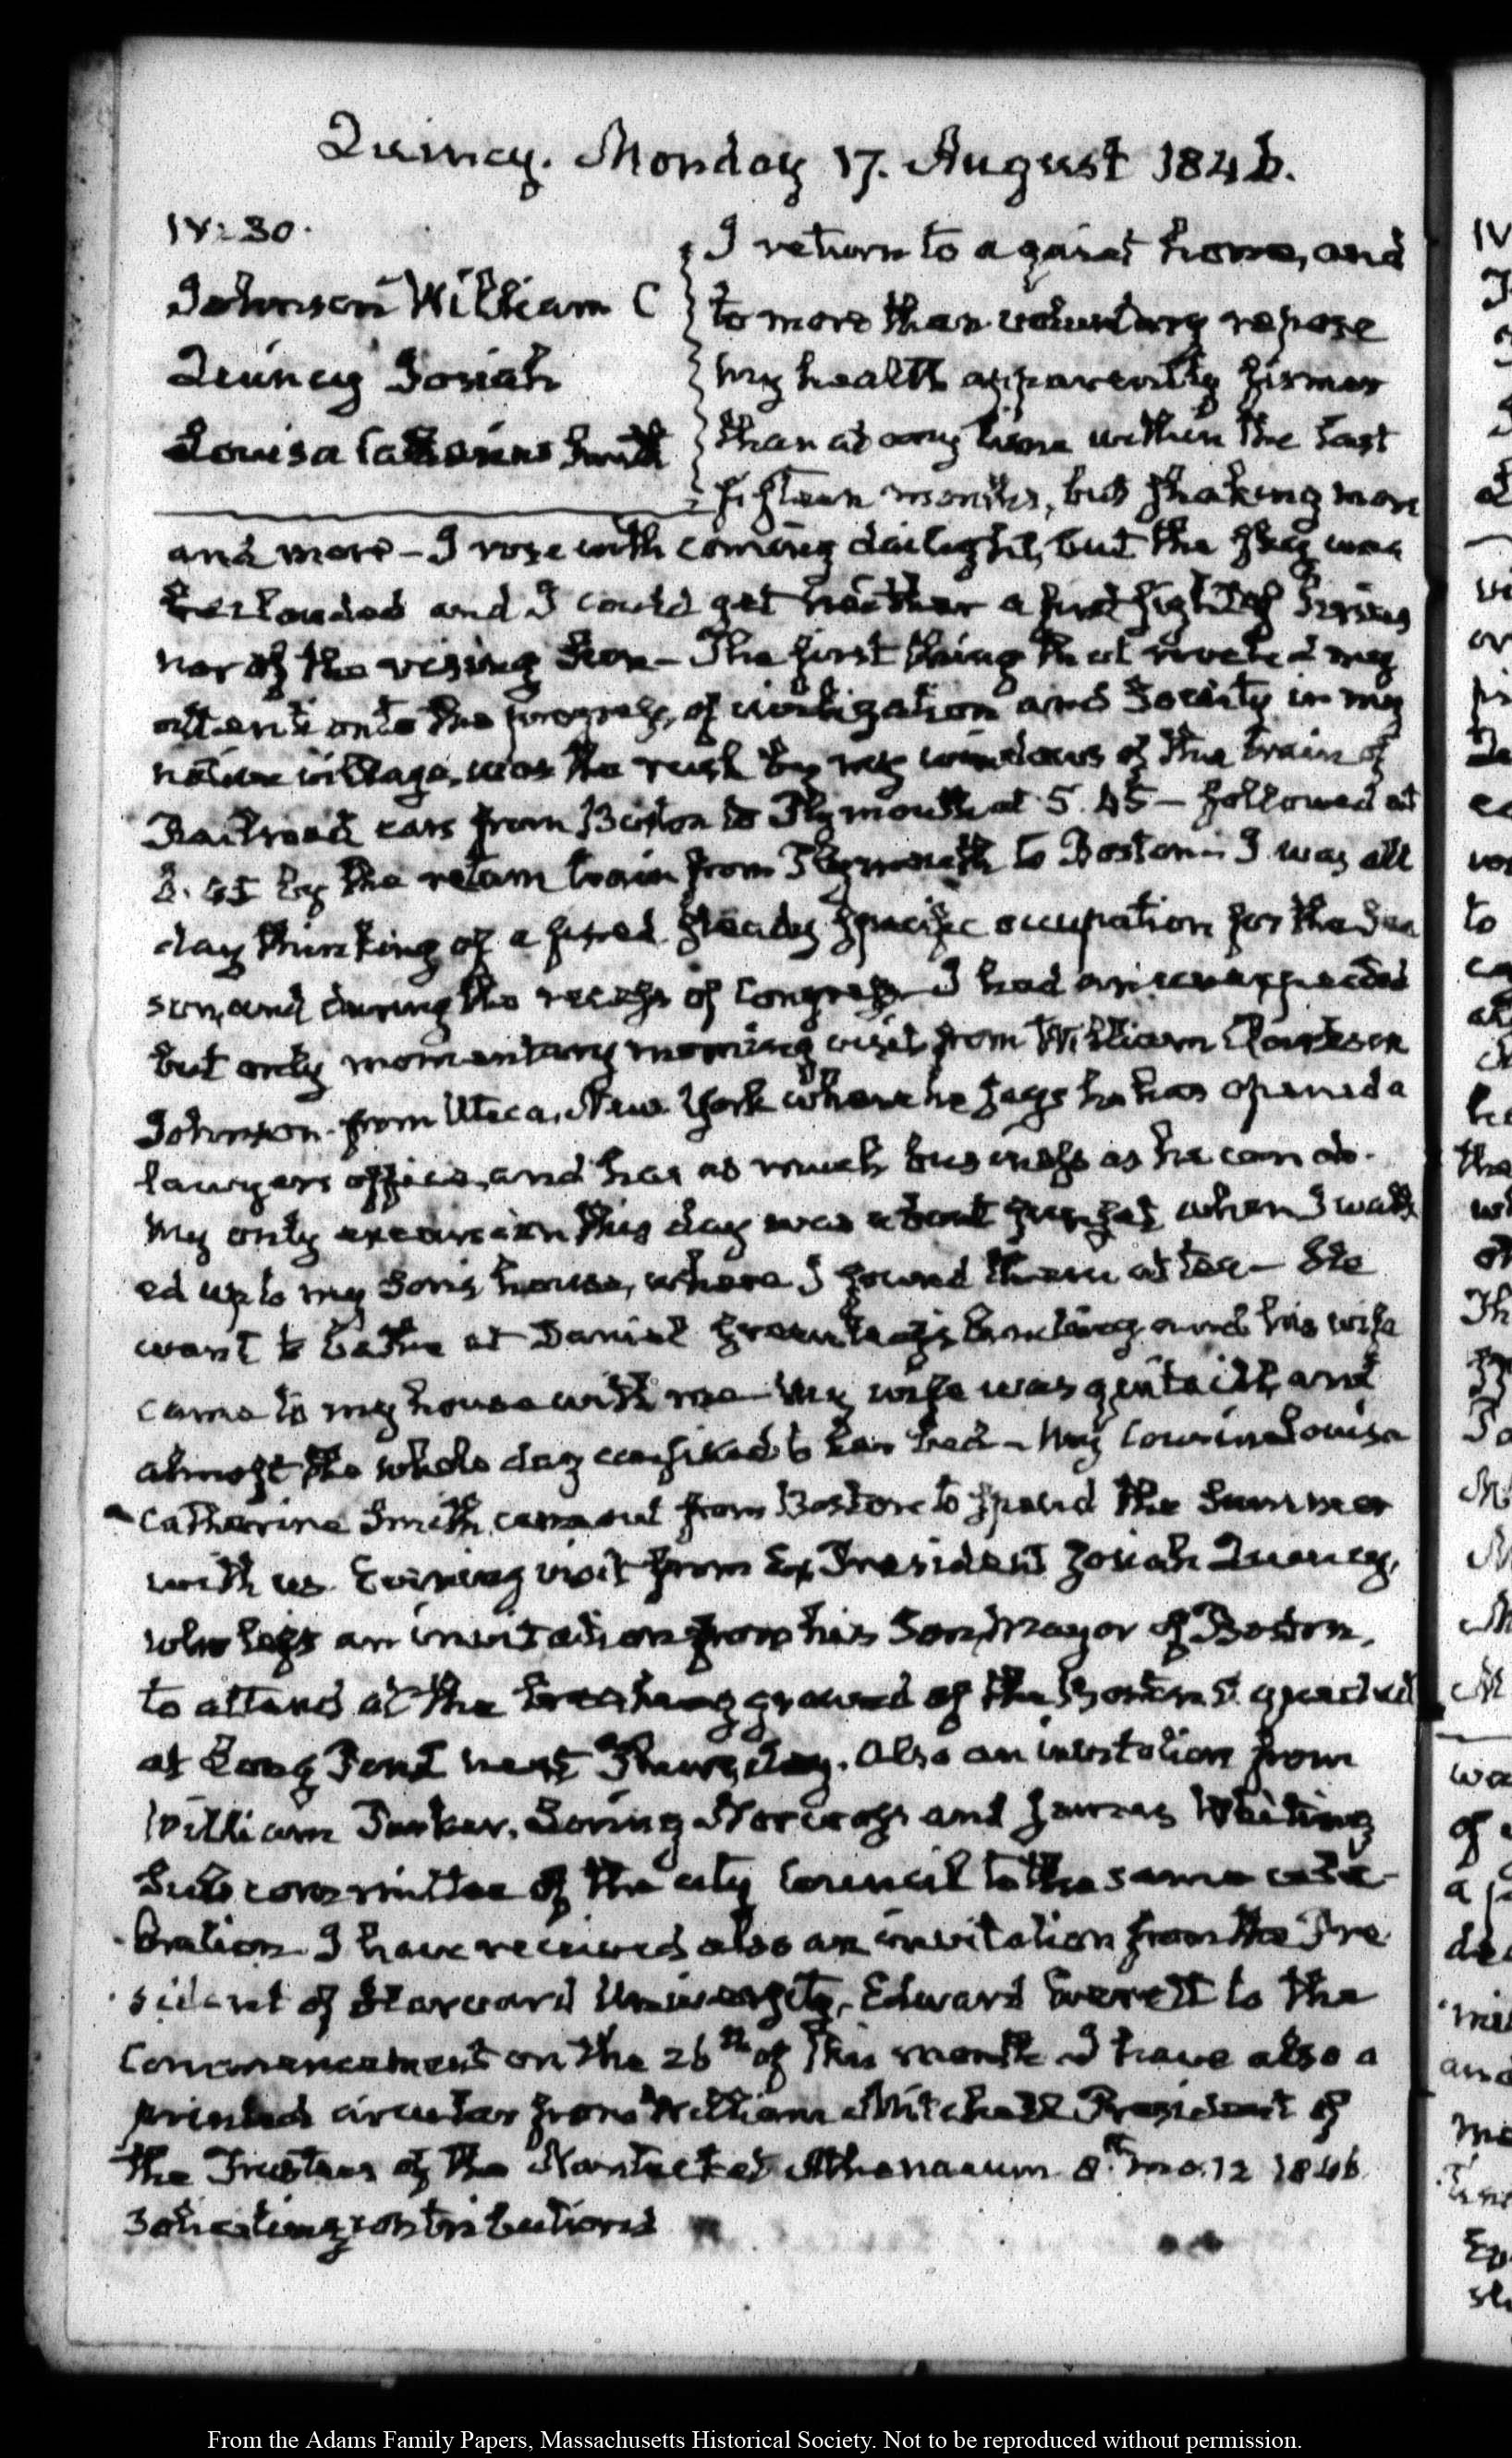 Quincy. Monday 17. August 1846.
IV:30.
Johnson William C
Quincy Josiah
Louisa Catherine Smith
I return to a quiet home, and
to more than voluntary repose
my health apparently firmer
than at any time within the last
fifteen months, but shaking more
and more – I rose with coming daylight, but the sky was
beclouded and I could get neither a first sight of Sirius
nor of the rising Sun – The first thing that riveted my
attention to the progress of civilization and Society in my
native village, was the rush by my windows of the train of
Railroad cars from Boston to Plymouth at 5.45 – followed at
by the return train from Plymouth to Boston – I was all
day thinking of a fixed steady specific occupation for the sea
son, and during the recess of Congress – I had an unexpected
but only momentary morning visit from William Clarkson
Johnson from Utica, New York where he says he has opened a
lawyers office, and has as much business as he can do.
My only excursion this day was about sunset when I walk
ed up to my Son's house, where I found them at tea – He
went to bathe at Daniel Greenleaf's and his wife
came to my house with me – My wife was quite ill, and
almost the whole day confined to her bed – My Cousin Louisa
Catherine Smith came out from Boston to spend the Summer
with us. Evening visit from Ex President Josiah Quincy,
who left an invitation from his Son, Mayor of Boston,
to attend at the breaking ground of the Boston aqueduct
at Long Pond next Thursday. Also an invitation from
William Parker, Loring Norcross and James Whiting
Sub committee of the city Council to the same cele-
bration. I have received also an invitation from the Pre
sident of Harvard University, Edward Everett to the
Commencement on the 26th of this month. I have also a
printed circular from William Mitchell President of
the Trustees of the Nantucket Athenaeum 8th mo. 12 1846
soliciting contributions
From the Adams Family Papers, Massachusetts Historical Society. Not to be reproduced without permission.